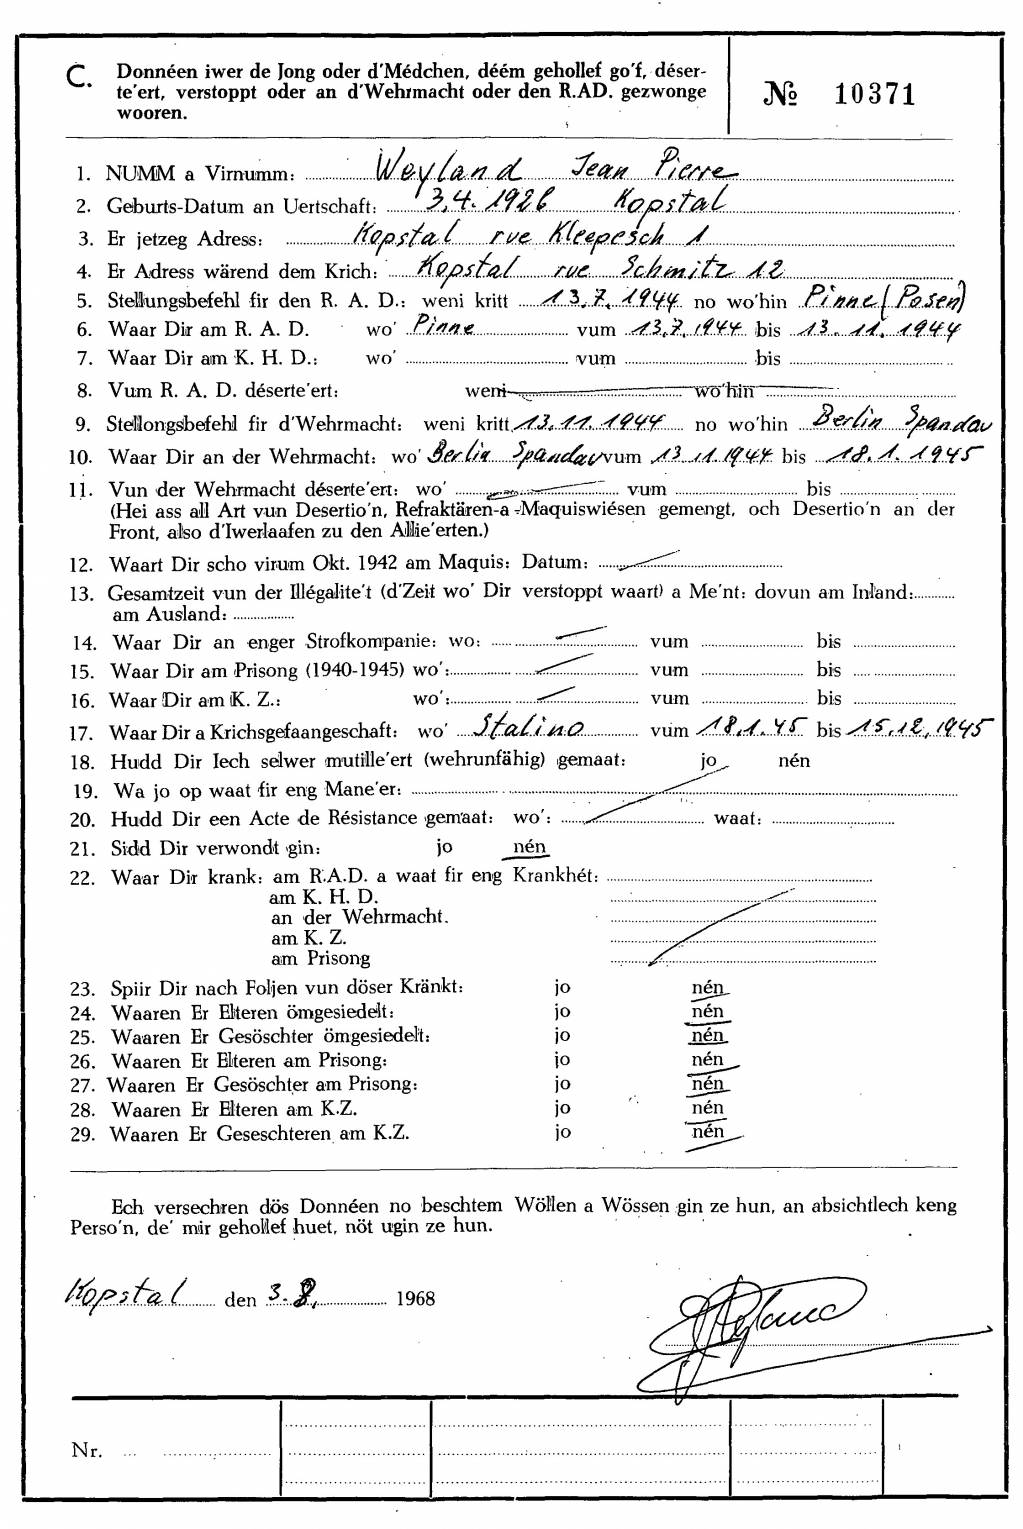 C. Donnéen iwer de Jong oder d'Médchen, déém gehollef go'f, déser-
te'ert, verstoppt oder an d'Wehrmacht oder den R.AD. gezwonge
wooren.
№ 10371
1. NUMM a Virnumm: Weyland Jean Pierre
2. Geburts-Datum an Uertschaft: 3.4.1926 Kopstal
3. Er jetzeg Adress: Kopstal rue Kleepesch 1
4. Er Adress wärend dem Krich: Kopstal rue Schmitz 12
5. Stellungsbefehl fir den R. A. D.: weni kritt 13.7.1944 no wo'hin Pinne (Posen)
6. Waar Dir am R. A. D. wo' Pinne vum 13.7.1944 bis 13.11.1944
7. Waar Dir am K. H. D.: wo' vum bis
8. Vum R. A. D. déserte'ert: weni wo'hin
9. Stellongsbefehl fir d'Wehrmacht: weni kritt 13.11.1944 no wo'hin Berlin Spandau
10. Waar Dir an der Wehrmacht: wo' Berlin Spandau vum 13.11.1944 bis 18.1.1945
11. Vun der Wehrmacht déserte'ert: wo' vum bis
(Hei ass all Art vun Desertio'n, Refraktären-a -Maquiswiésen gemengt, och Desertio'n an der
Front, also d'Iwerlaafen zu den Allie'erten.)
12. Waart Dir scho virum Okt. 1942 am Maquis: Datum:
13. Gesamtzeit vun der Illégalite't (d'Zeit wo' Dir verstoppt waart) a Me'nt: dovun am Inland:
am Ausland:
14. Waar Dir an enger Strofkompanie: wo: vum bis
15. Waar Dir am Prisong (1940-1945) wo': vum bis
16. Waar Dir am K. Z.: wo': vum bis
17. Waar Dir a Krichsgefaangeschaft: wo' Stalino vum 18.1.45 bis 15.12.1945
18. Hudd Dir Iech selwer mutille'ert (wehrunfähig) gemaat: jo nén
19. Wa jo op waat fir eng Mane'er:
20. Hudd Dir een Acte de Résistance gemaat: wo': waat:
21. Sidd Dir verwondt gin: jo nén
22. Waar Dir krank: am R.A.D. a waat fir eng Krankhét:
am K. H. D.
an der Wehrmacht.
am K. Z.
am Prisong
23. Spiir Dir nach Foljen vun döser Kränkt: jo nén
24. Waaren Er Elteren ömgesiedelt: jo nén
25. Waaren Er Gesöschter ömgesiedelt: jo nén
26. Waaren Er Elteren am Prisong: jo nén
27. Waaren Er Gesöschter am Prisong: jo nén
28. Waaren Er Elteren am K.Z. jo nén
29. Waaren Er Geseschteren am K.Z. jo nén
Ech versechren dös Donnéen no beschtem Wöllen a Wössen gin ze hun, an absichtlech keng
Perso'n, de' mir gehollef huet, nöt ugin ze hun.
Kopstal den 3.8. 1968
Weyland
Nr.